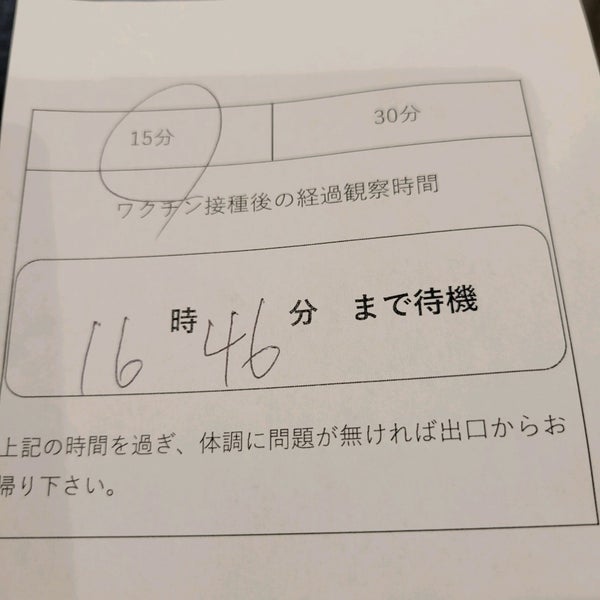 15分 30分
ワクチン接種後の経過観察時間
16時46分 まで待機
上記の時間を過ぎ、体調に問題が無ければ出口からお
帰り下さい。